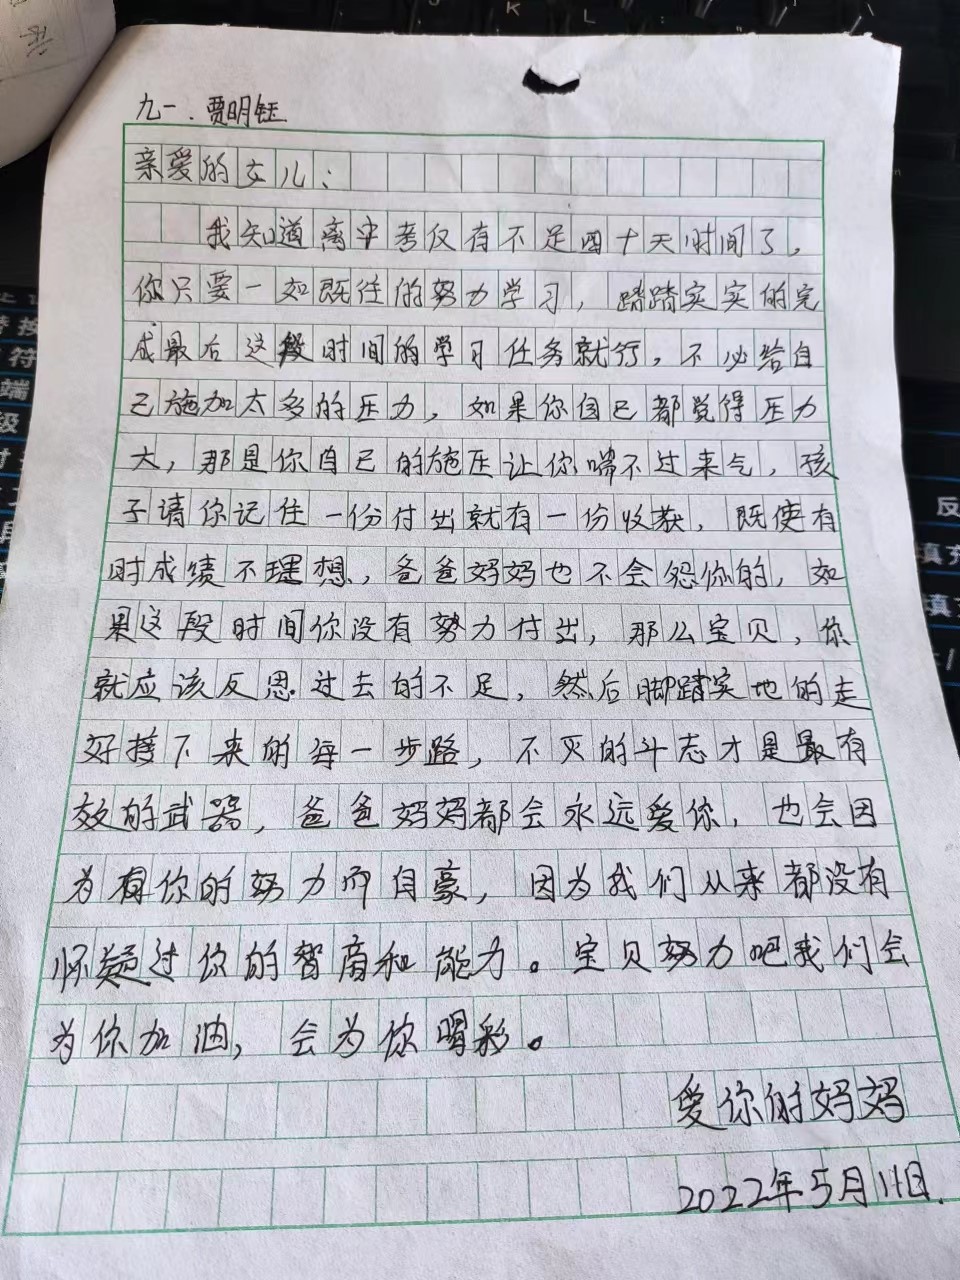 九一.贾明钰
亲爱的女儿:
我知道离中考仅有不足四十天时间了,
你只要一如既往的努力学习,踏踏实实的完
成最后这段时间的学习任务就行,不必给自
己施加太多的压力,如果你自己都觉得压力
大,那是你自己的施压让你喘不过来气,孩
子请你记住一份付出就有一份收获,既使有
时成绩不理想,爸爸妈妈也不会怨你的,如
果这段时间你没有努力付出,那么宝贝,你
就应该反思过去的不足,然后脚踏实地的走
好接下来的每一步路,不灭的斗志才是最有
效的武器,爸爸妈妈都会永远爱你,也会因
为有你的努力而自豪,因为我们从来都没有
怀疑过你的智商和能力。宝贝努力吧我们会
为你加油,会为你喝彩。
爱你的妈妈
2022年5月11日.
K
L
替换
符
端
级
段
反
填充
填充